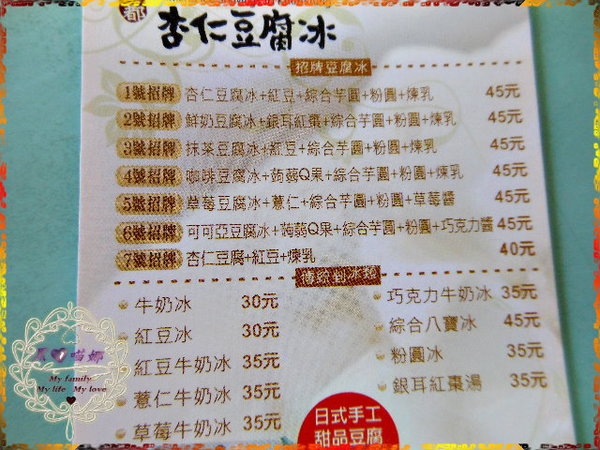 都
杏仁豆腐冰
招牌豆腐冰
1號招牌 杏仁豆腐冰+紅豆+綜合芋圓+粉圓+煉乳 45元
2號招牌 鮮奶豆腐冰+銀耳紅棗+綜合芋圓+粉圓+煉乳 45元
3號招牌 抹茶豆腐冰+紅豆+綜合芋圓+粉圓+煉乳 45元
4號招牌 咖啡豆腐冰+蒟蒻Q果+綜合芋圓+粉圓+煉乳 45元
5號招牌 草莓豆腐冰+薏仁+綜合芋圓+粉圓+草莓醬 45元
6號招牌 可可亞豆腐冰+蒟蒻Q果+綜合芋圓+粉圓+巧克力醬 45元
7號招牌 杏仁豆腐+紅豆+煉乳 40元
傳統剉冰類
牛奶冰 30元
紅豆冰 30元
紅豆牛奶冰 35元
薏仁牛奶冰 35元
草莓牛奶冰 35元
巧克力牛奶冰 35元
綜合八寶冰 45元
粉圓冰 35元
銀耳紅棗湯 35元
日式手工
甜品豆腐
My family
My life My love